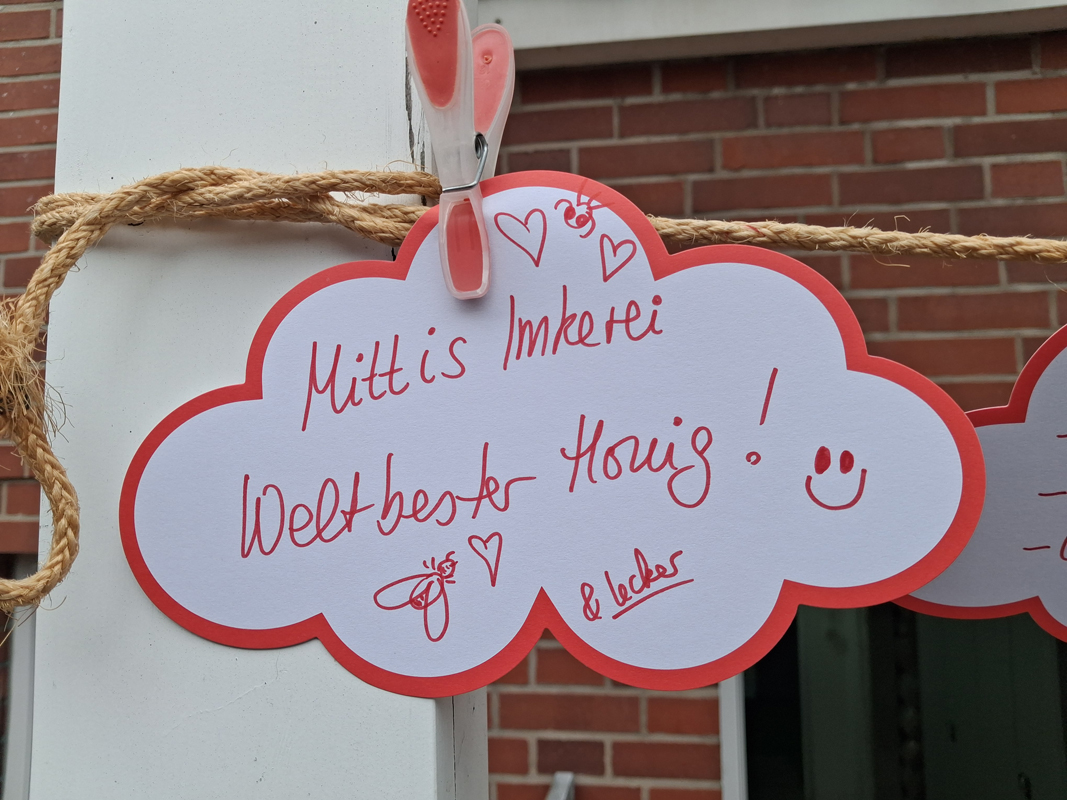 Mittis Imkerei
Weltbester Honig!
& lecker